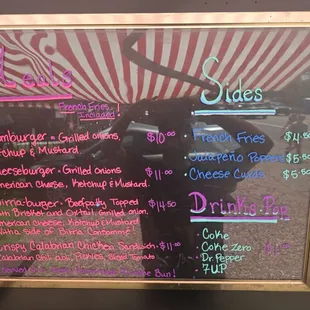 eats
Sides
French Fries
Included!
French Fries $4.50
Hamburger = Grilled onions, $10.00
Ketchup & Mustard
Jalapeño Poppers $5.50
Cheeseburger = Grilled onions $11.00
American Cheese, Ketchup & Mustard.
Cheese Curds $5.50
Birria-burger - Beef patty Topped $14.50
with Brisket and Oxtail, Grilled onion,
American cheese, Ketchup & Mustard
With a side of Birria Consommé!
Drinks-Pop
Coke
Coke Zero
Dr. Pepper
7UP
Crispy Calabrian Chicken Sandwich-$11.00
Calabrian Chili Pickles, Sliced Tomato
Bun!